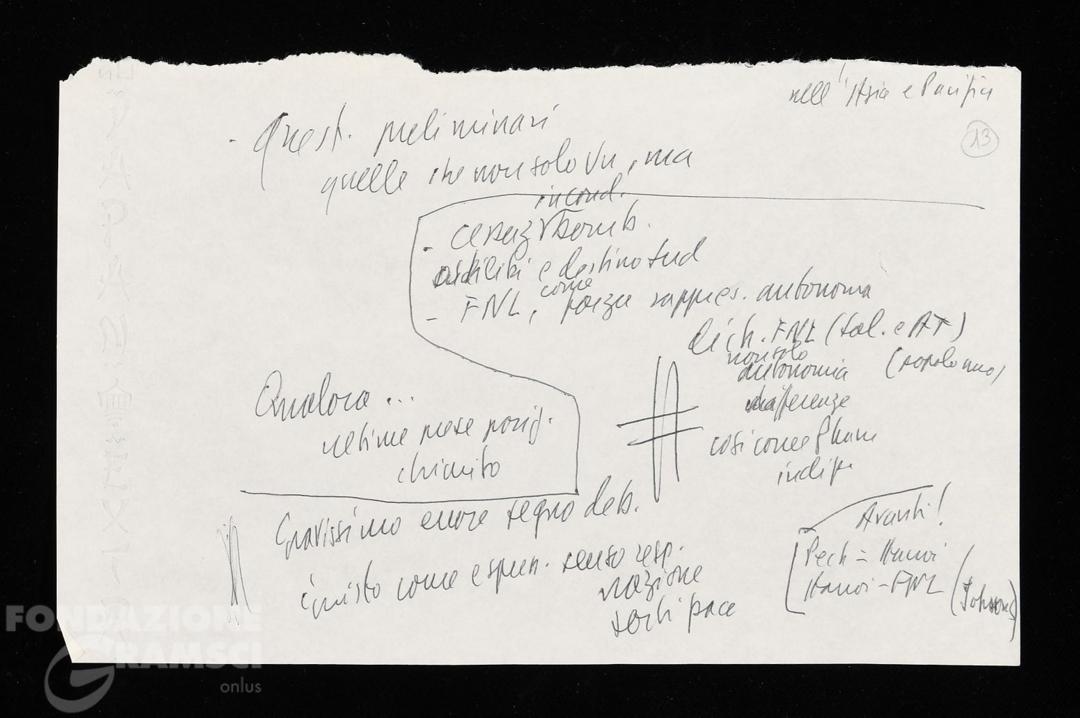 nell'Asia e Pacifico
13
- Quest. preliminari
quelle che non solo Vn, ma
incond.
- cessaz bomb.
ostilità e destino Sud
come
- FNL, forza rappres. autonoma
dich. FNL (Sal. e AT)
non solo
autonomia (popolo nuo)
differenze
così come Pham
indip
Qualora ...
ultime prese posiz.
chiarito
Gravissimo errore segno deb.
giusto come espress. senso resp.
nazione
sorti pace
Avanti!
Pech = Hanoi
Hanoi - FNL (Johnson)
FONDAZIONE
GRAMSCI
onlus